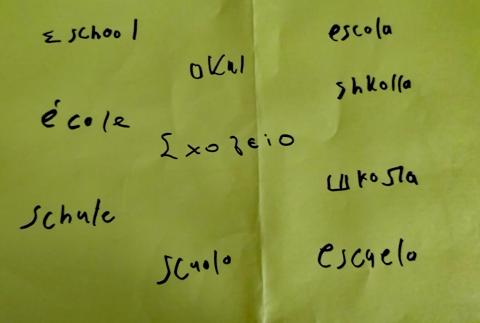 Σ school
escola
okul
shkolla
école
Σχολείο
школа
schule
scuola
escuela